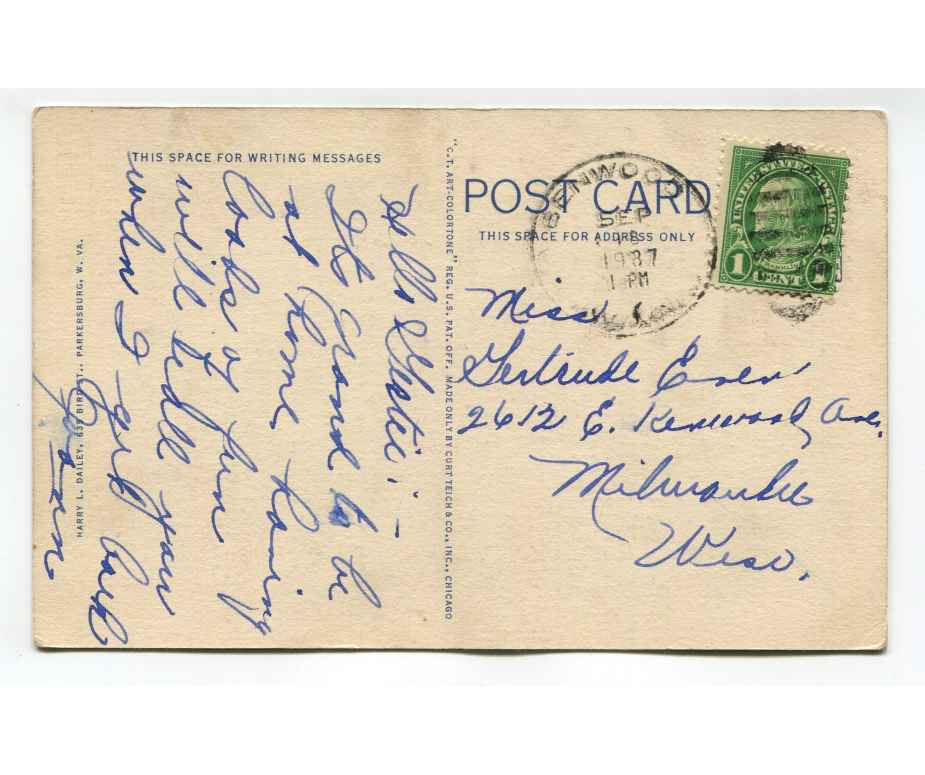 THIS SPACE FOR WRITING MESSAGES
Hello Gertie: –
Its Grand to be
at home having
loads of fun
will tell you
when I get back
HARRY L. DAILEY, 635 BIRD ST., PARKERSBURG, W. VA.
"C.T. ART-COLORTONE" REG. U.S. PAT. OFF. MADE ONLY BY CURT TEICH & CO., INC., CHICAGO
POST CARD
THIS SPACE FOR ADDRESS ONLY
BENWOOD
SEP
1937
1 PM
UNITED STATES POSTAGE
1 CENT 1
Miss
Gertrude
2612 E. Kenwood Ave.
Milwaukee
Wisc.